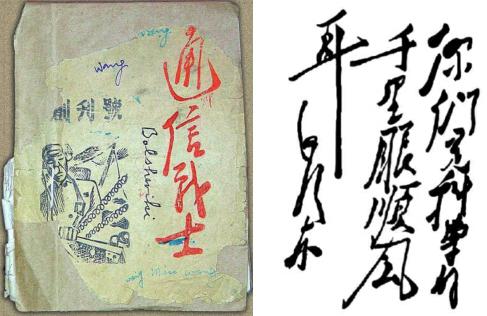 wang
wang
創刊號
通信战士
Bolsheviki
你们是科学的
千里眼順风
耳 毛泽东